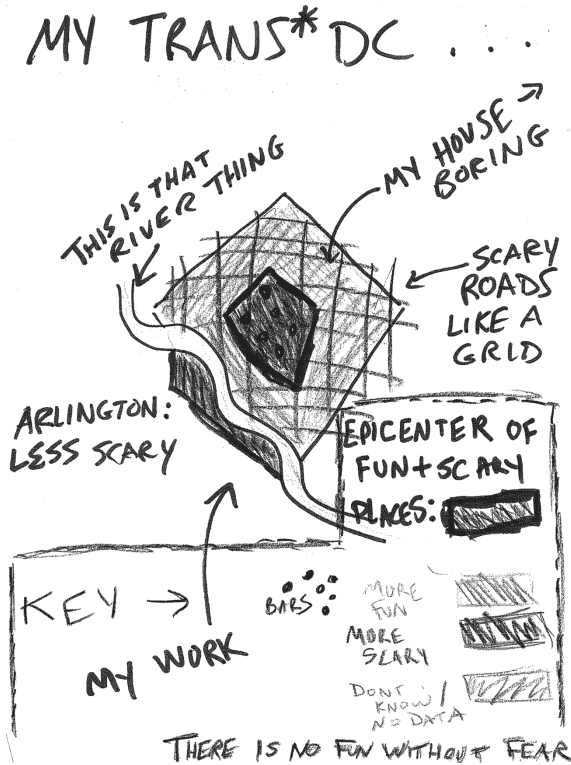 MY TRANS* DC ...
THIS IS THAT
RIVER THING
MY HOUSE →
BORING
SCARY
ROADS
LIKE A
GRID
ARLINGTON:
LESS SCARY
EPICENTER OF
FUN + SCARY
PLACES:
KEY →
BARS
MORE
FUN
MORE
SCARY
DONT
KNOW/
NO DATA
MY WORK
THERE IS NO FUN WITHOUT FEAR